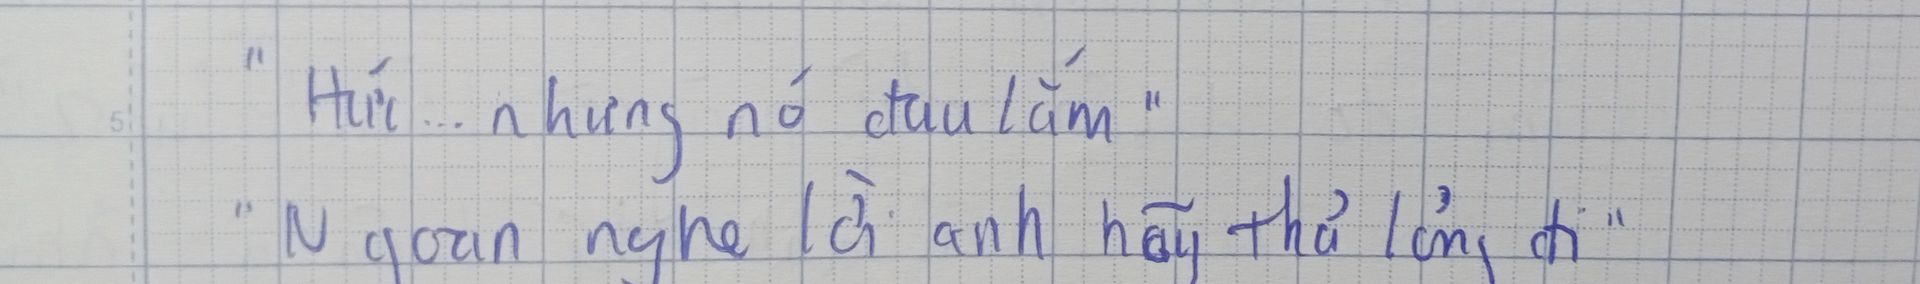 "Hức... nhưng nó đau lắm"
"Ngoan nghe lời anh hãy thả lỏng đi"